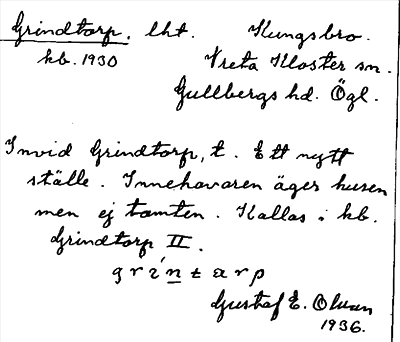 Grindtorp, lht. Kungsbro.
kb. 1930 Vreta Kloster sn.
Gullbergs hd. Ögl.
Invid Grindtorp, t. Ett nytt
ställe. Innehavaren äger husen
men ej tomten. Kallas i kb.
Grindtorp II.
grińtarp
Gustaf E. Olsson
1936.